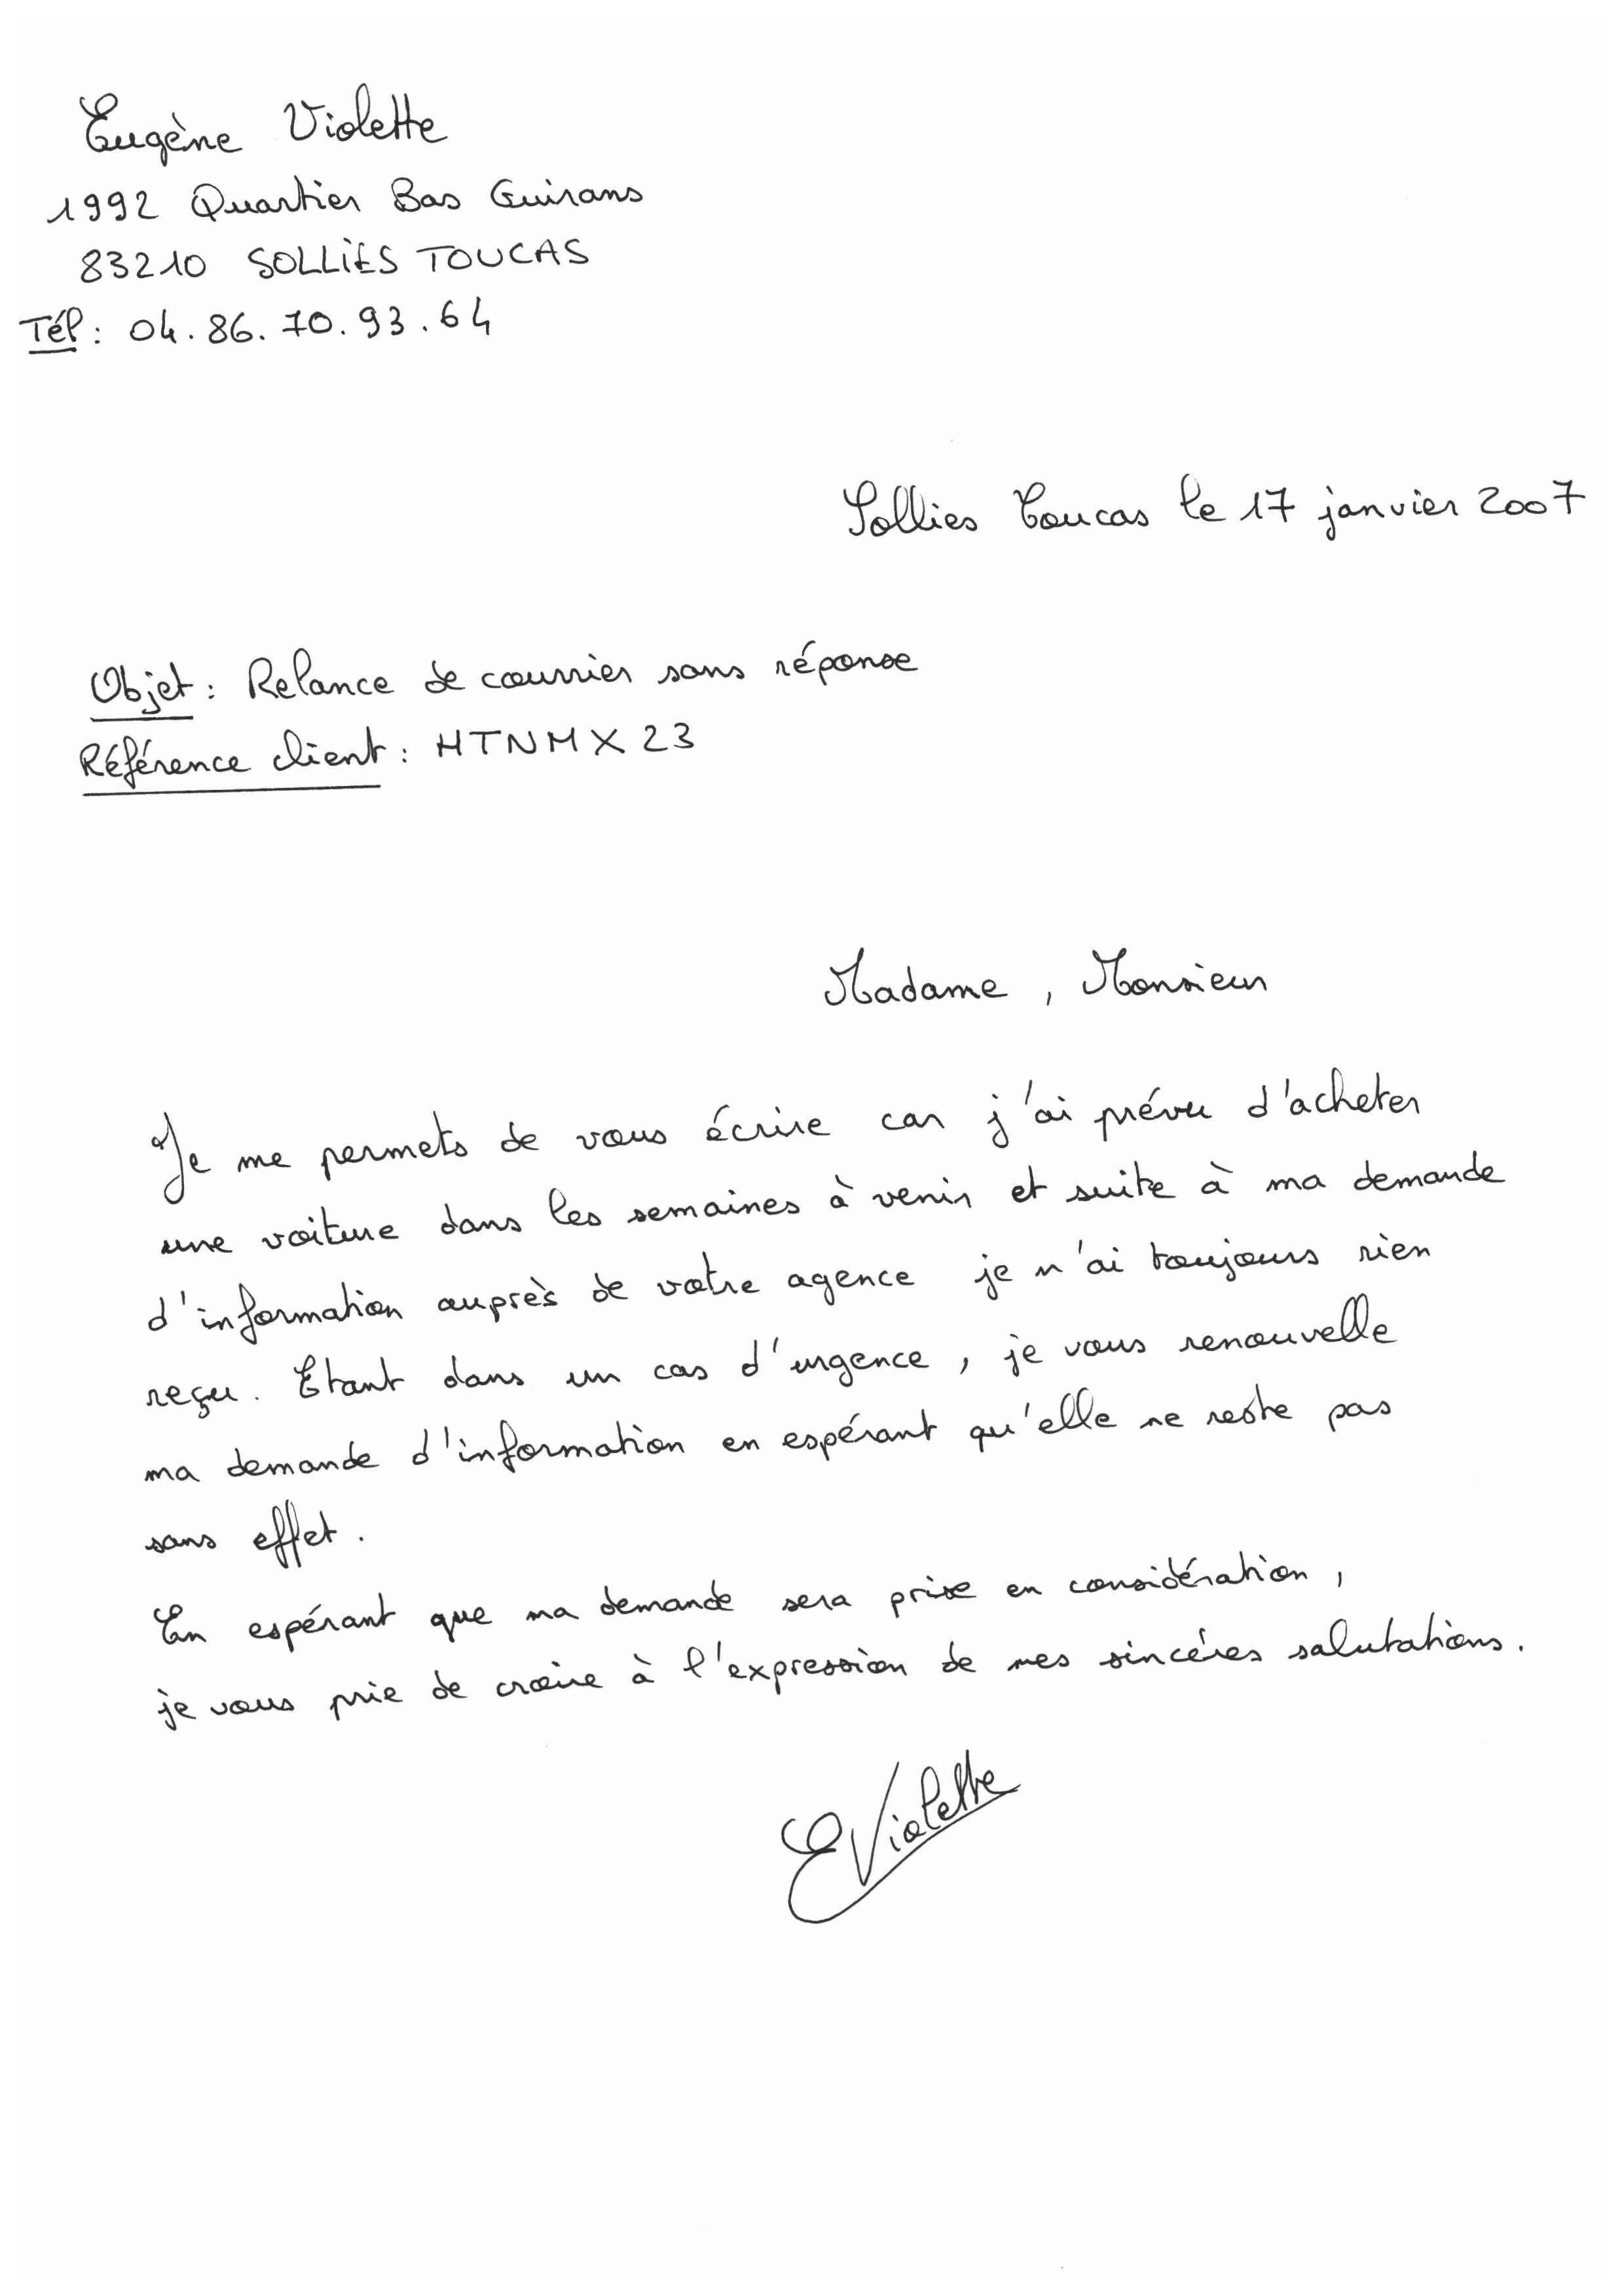 Eugène Violette
1992 Quartier Bas Guirans
83210 SOLLIÈS TOUCAS
Tél : 04.86.70.93.64
Sollies Toucas le 17 janvier 2007
Objet : Relance de courrier sans réponse
Référence client : HTNMX23
Madame, Monsieur
Je me permets de vous écrire car j'ai prévu d'acheter
une voiture dans les semaines à venir et suite à ma demande
d'information auprès de votre agence je n'ai toujours rien
reçu. Etant dans un cas d'urgence, je vous renouvelle
ma demande d'information en espérant qu'elle ne reste pas
sans effet.
En espérant que ma demande sera prise en considération,
je vous prie de croire à l'expression de mes sincéres salutations.
EViolette